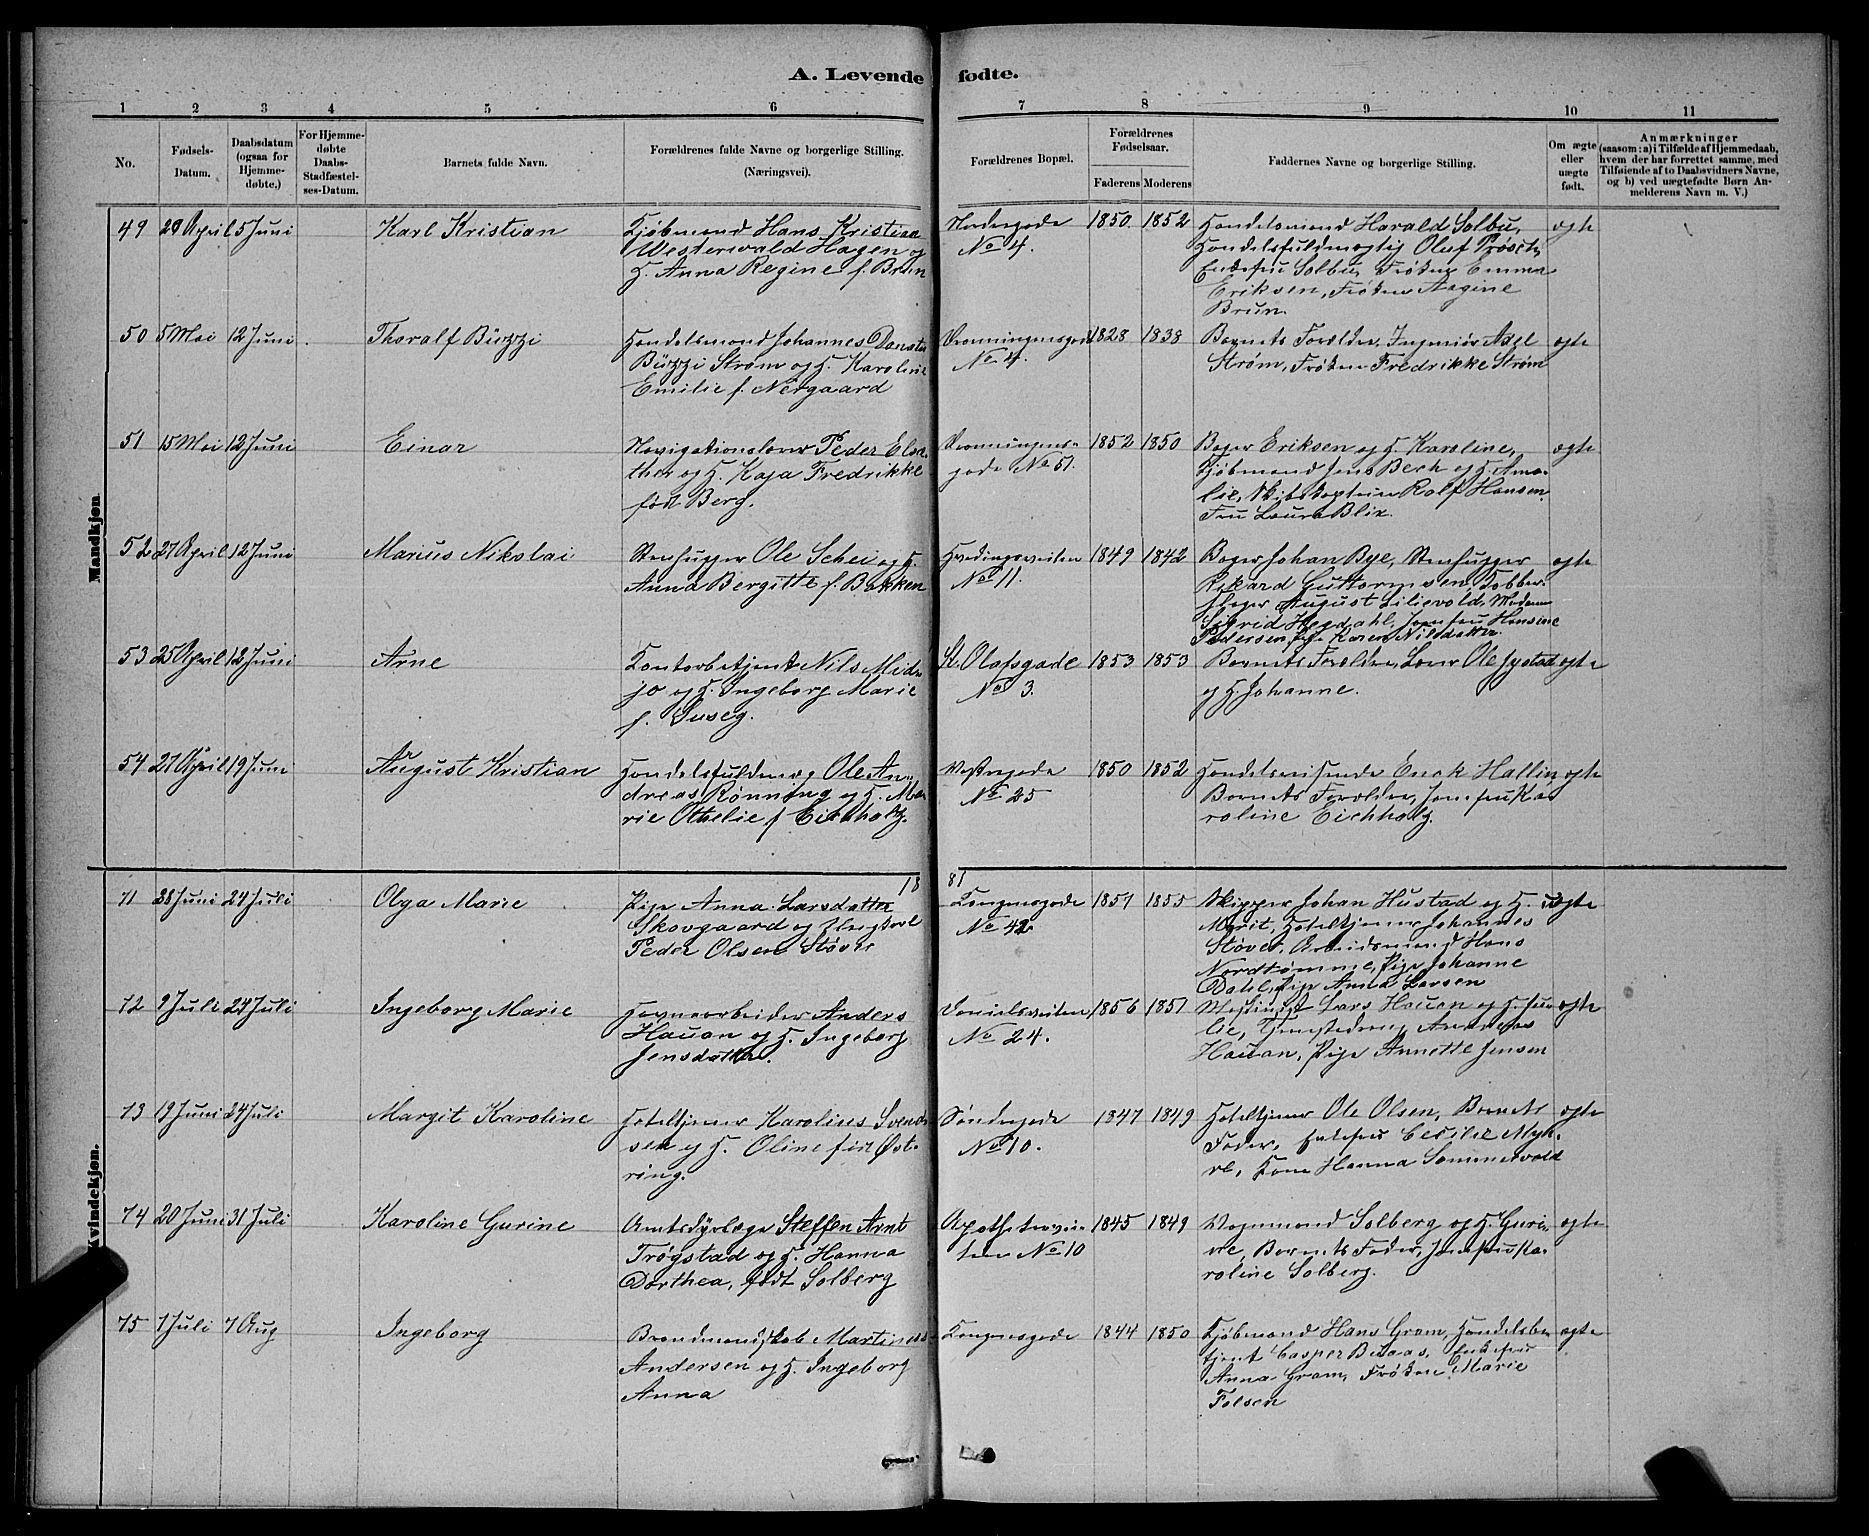 A. Levende fødte.
1 2 3 4 5 6 7 8 9 10 11
No.
Fødsels-
Datum.
Daabsdatum
(ogsaa for
Hjemme-
døbte.)
For Hjemme-
døbte
Daabs-
Stadfæstel-
ses-Datum.
Barnets fulde Navn.
Forældrenes fulde Navne og borgerlige Stilling.
(Næringsvei).
Forældrenes Bopæl.
Forældrenes
Fødselsaar.
Faderens Moderens
Faddernes Navne og borgerlige Stilling.
Om ægte
eller
uægte
født.
Anmærkninger
(saasom: a) i Tilfælde af Hjemmedaab,
hvem der har forrettet samme, med
Tilføiende af to Daabsvidners Navne,
og b) ved uægtefødte Børn An-
melderens Navn m. V.)
Mandkjøn.
49 29 April 5 Juni Karl Kristian
Kjøbmand Hans Kristian
Westerwald Hagen og
H. Anna Regine f. Brun
Nordregade
No 4.
1850. 1852
Handelsmand Harald Solbu,
Handelsfuldmægtig Oluf Prøsch,
Enkefru Solbu, Frøken Emma
Eriksen, Frøken Regine
Brun.
ægte
50 5 Mai 12 Juni Thoralf Büzzi
Handelsmand Johannes
Büzzi Strøm og H. Karoline
Emilie f. Nergaard
Dronningensgade
No 4.
1828 1838
Barnets Forældre, Ingeniør Axel
Strøm, Frøken Fredrikke Strøm
ægte
51 15 Mai 12 Juni Einar
Navigationslærer Peder Elsæ-
ther og H. Kaja Fredrikke
født Berg.
Dronningens-
gade No 51.
1852 1850
Bager Eriksen og H. Karoline,
Kjøbmand Jens Bech og H. Ama-
lie, Skibskaptein Rolf Hansen,
Fru Laura Blix.
ægte
52 27 April 12 Juni Marius Nikolai
Stenhugger Ole Schei og H.
Anna Bergitte f. Bakken
Hvedingsveiten
No 11.
1849 1842
Bager Johan Bye, Stenhugger
Rikard Guttormsen, Kobber-
slager August Lilievold, Madam
Sigrid Hegdahl, Jomfru Hansine
Pedersen, Pige Karen Nilsdatter.
ægte
53 25 April 12 Juni Arne
Kontorbetjent Nils Mid-
jo og H. Ingeborg Marie
f. Guseg.
St. Olafsgade
No 3.
1853 1853
Barnets Forældre, Lærer Ole
og H. Johanne.
ægte
54 27 April 19 Juni August Kristian
Handelsfuldmæg Ole An-
dreas Rønning og H. Ma-
rie Othelie f. Eichholz.
Vestregade
No 25
1850 1852
Handelsreisende Erick Hallin
Barnets Forældre, Jomfru Ka-
roline Eichholz.
ægte
18 81
Kvindekjøn.
71 28 Juni 24 Juli Olga Marie
Pige Anna Larsdatter
Skovgaard og Ungkarl
Peder Olsen Støver
Kongensgade
No 42
1857 1855
Skipper Johan Hustad og H.
Marit, Hotelkjører Johannes
Støver, Arbeidsmand Hans
Nordtømme, Pige Johanne
Dahl, Pige Anna Larsen
uægte
72 9 Juli 24 Juli Ingeborg Marie
Havnearbeider Anders
Hauan og H. Ingeborg
Jensdatter.
Danielsveiten
No 24.
1856 1857
Maskinist Lars Hauan og H. Ju-
lie, Tjenestedreng Andreas
Hauan, Pige Annette Jensen
ægte
73 19 Juni 24 Juli Margit Karoline
Hotelkjører Karolius Svend-
sen og H. Oline født Øst-
ring.
Søndregade
No 10.
1847 1849
Hotelkjører Ole Olsen, Barnets
Fader, Enkefru Cecilie Myh-
re, Kone Hanna Sommervold
ægte
74 20 Juni 31 Juli Karoline Gurine
Amtsdyrlæge Steffen Arnt
Trøgstad og H. Hanna
Dorthea, født Solberg
Apothekervei-
ten No 10
1845 1849
Vognmand Solberg og H. Guri-
ne, Barnets Fader, Jomfru Ka-
roline Solberg.
ægte
75 1 Juli 7 Aug Ingeborg
Brandmandskab Martinus
Andersen og H. Ingeborg
Anna
Kongensgade
1844 1850
Kjøbmand Hans Gram, Handelsbe-
tjent Casper Enkefru
Anna Gram, Frøken Marie
Folsen
ægte